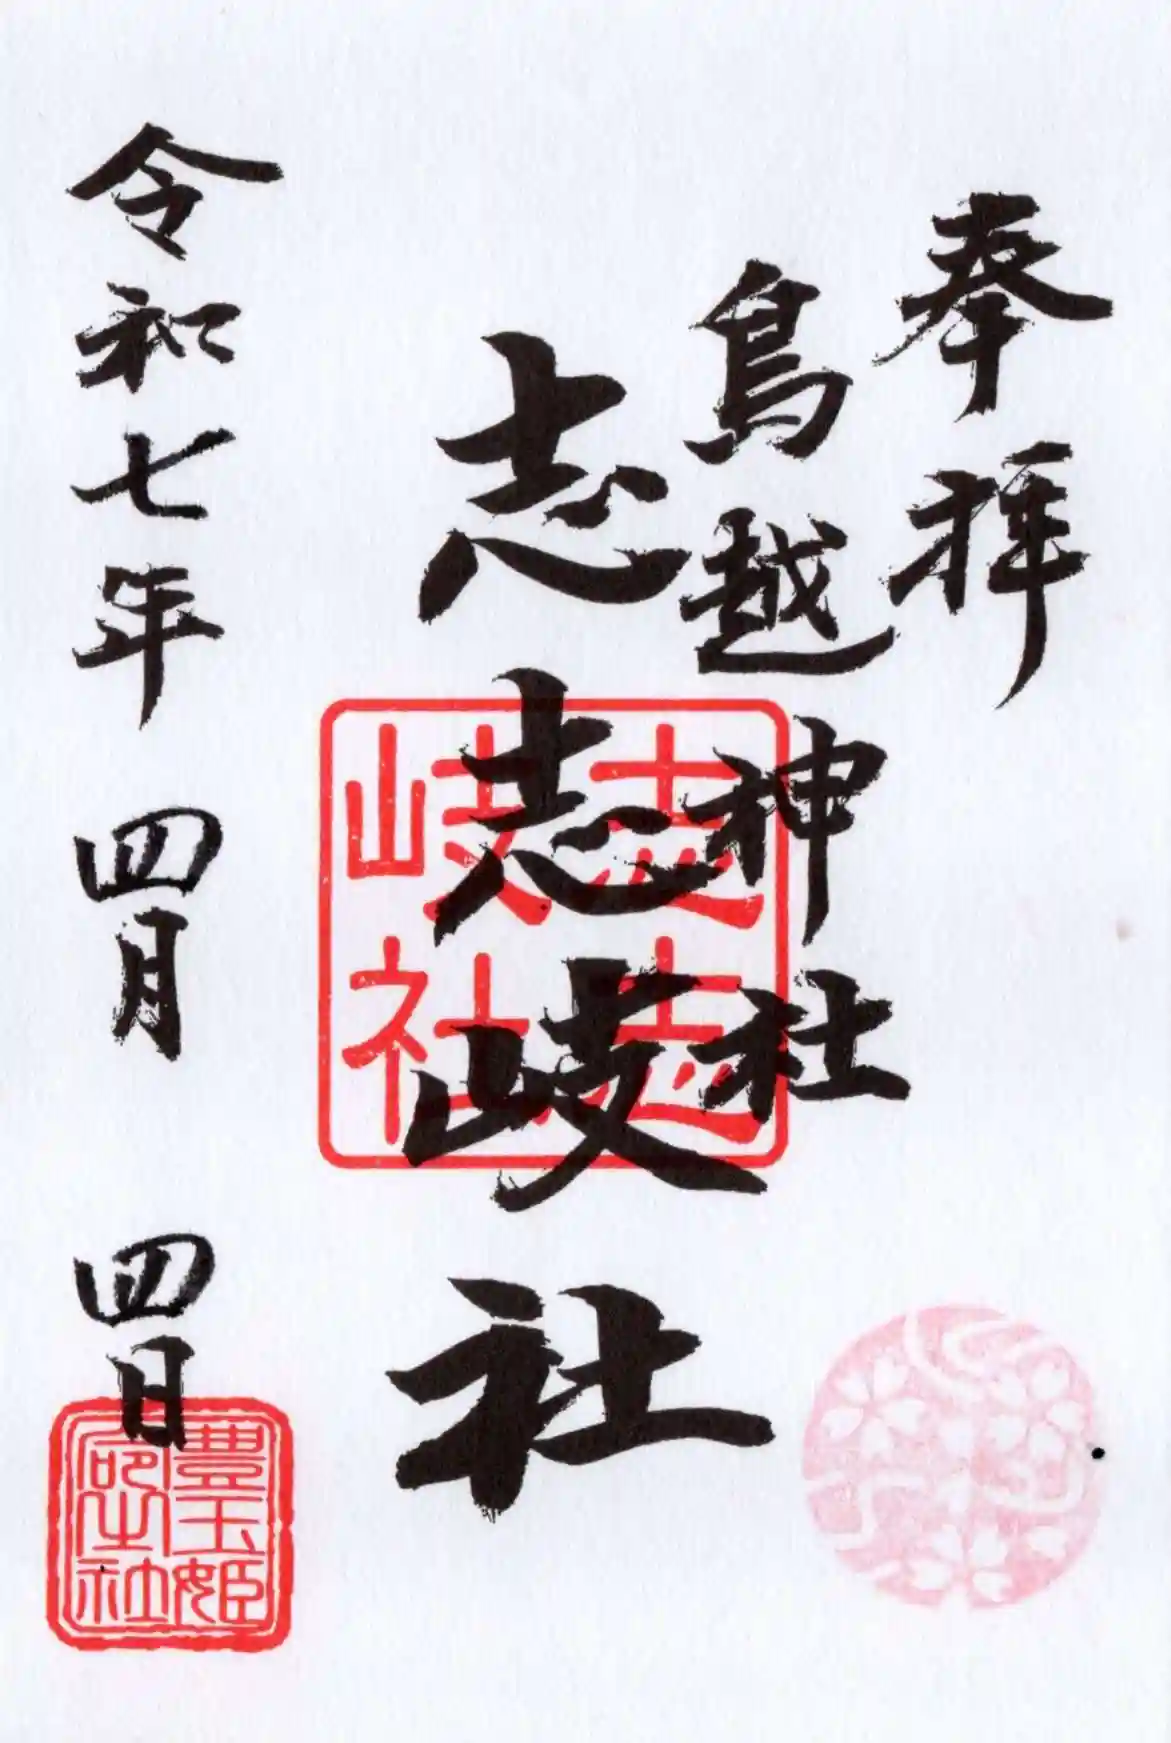 奉拝
鳥越神社
志志岐社
志志岐社
令和七年 四月 四日
豊玉姫命之社